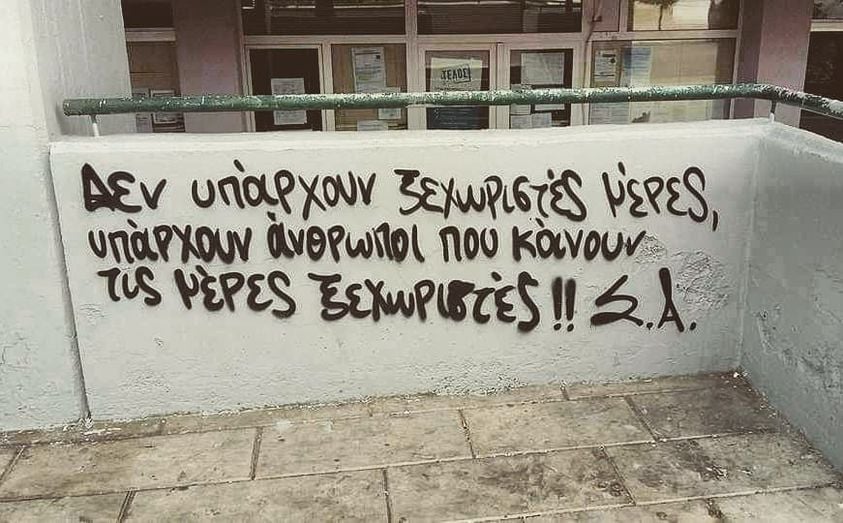 ΤΕΛΟΣ
Δεν υπάρχουν ξεχωριστές μέρες,
υπάρχουν άνθρωποι που κάνουν
τις μέρες ξεχωριστές!! Σ.Α.